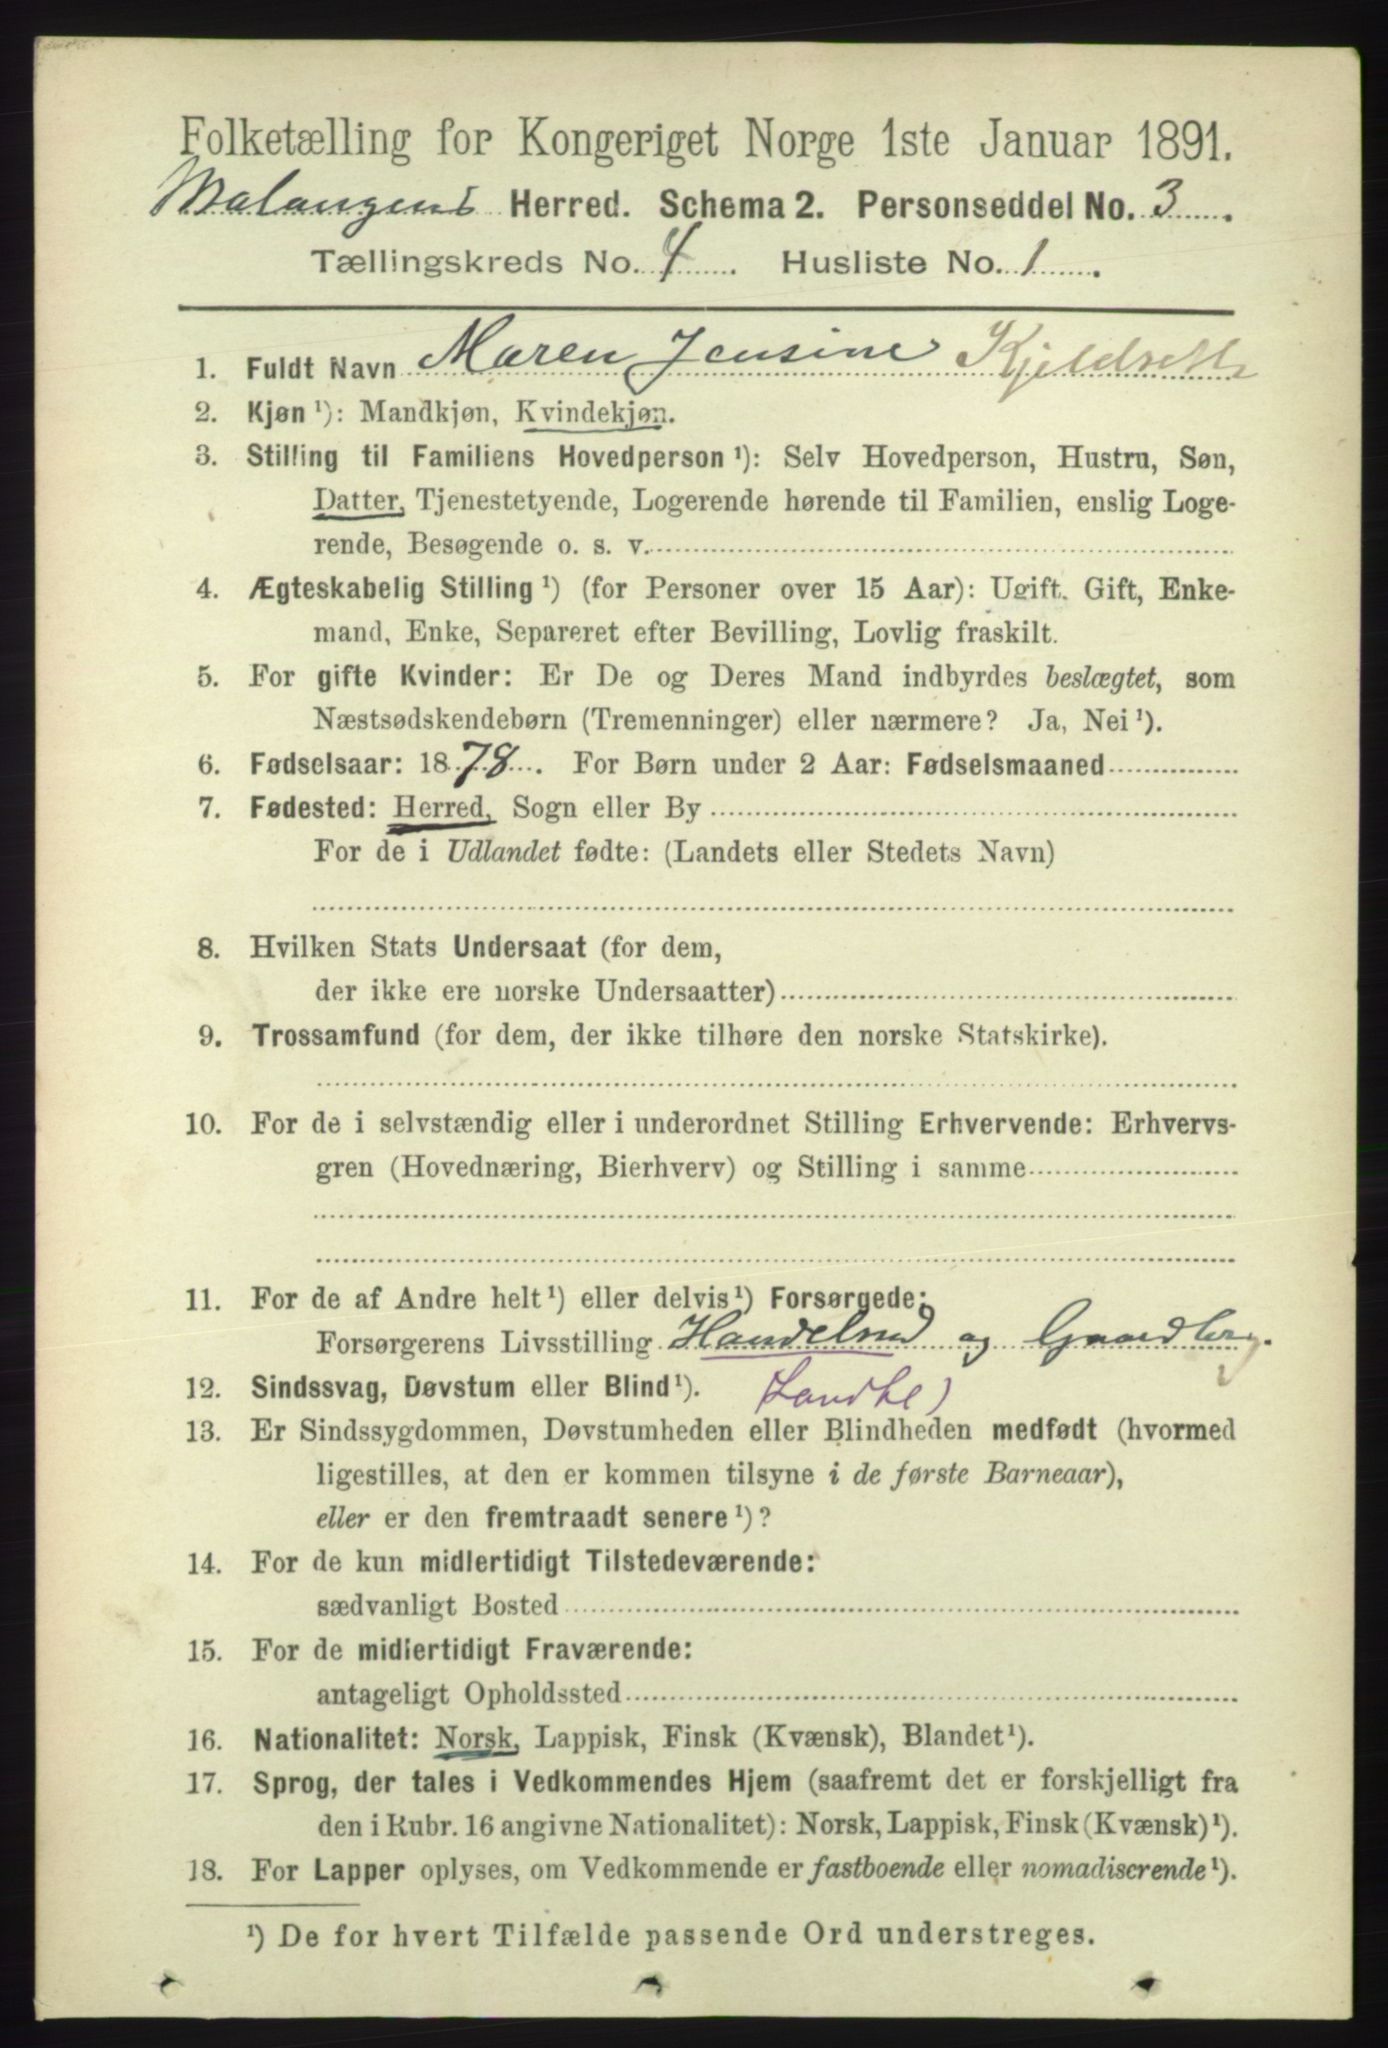 Folketælling for Kongeriget Norge 1ste Januar 1891.
Malangens Herred. Schema 2. Personseddel No. 3.
Tællingskreds No. 4. Husliste No. 1.
1. Fuldt Navn Maren Jensine
2. Kjøn ¹): Mandkjøn, Kvindekjøn.
3. Stilling til Familiens Hovedperson ¹): Selv Hovedperson, Hustru, Søn,
Datter, Tjenestetyende, Logerende hørende til Familien, enslig Loge-
rende, Besøgende o. s. v.
4. Ægteskabelig Stilling ¹) (for Personer over 15 Aar): Ugift, Gift, Enke-
mand, Enke, Separeret efter Bevilling, Lovlig fraskilt.
5. For gifte Kvinder: Er De og Deres Mand indbyrdes beslægtet, som
Næstsødskendebørn (Tremenninger) eller nærmere? Ja, Nei ¹).
6. Fødselsaar: 1878. For Børn under 2 Aar: Fødselsmaaned
7. Fødested: Herred, Sogn eller By
For de i Udlandet fødte: (Landets eller Stedets Navn)
8. Hvilken Stats Undersaat (for dem,
der ikke ere norske Undersaatter)
9. Trossamfund (for dem, der ikke tilhøre den norske Statskirke).
10. For de i selvstændig eller i underordnet Stilling Erhvervende: Erhvervs-
gren (Hovednæring, Bierhverv) og Stilling i samme
11. For de af Andre helt ¹) eller delvis ¹) Forsørgede:
Forsørgerens Livsstilling Handelsmd og Gaardbrg.
12. Sindssvag, Døvstum eller Blind ¹). (Landhl)
13. Er Sindssygdommen, Døvstumheden eller Blindheden medfødt (hvormed
ligestilles, at den er kommen tilsyne i de første Barneaar),
eller er den fremtraadt senere ¹)?
14. For de kun midlertidigt Tilstedeværende:
sædvanligt Bosted
15. For de midlertidigt Fraværende:
antageligt Opholdssted
16. Nationalitet: Norsk, Lappisk, Finsk (Kvænsk), Blandet ¹).
17. Sprog, der tales i Vedkommendes Hjem (saafremt det er forskjelligt fra
den i Rubr. 16 angivne Nationalitet): Norsk, Lappisk, Finsk (Kvænsk) ¹).
18. For Lapper oplyses, om Vedkommende er fastboende eller nomadiserende ¹).
¹) De for hvert Tilfælde passende Ord understreges.